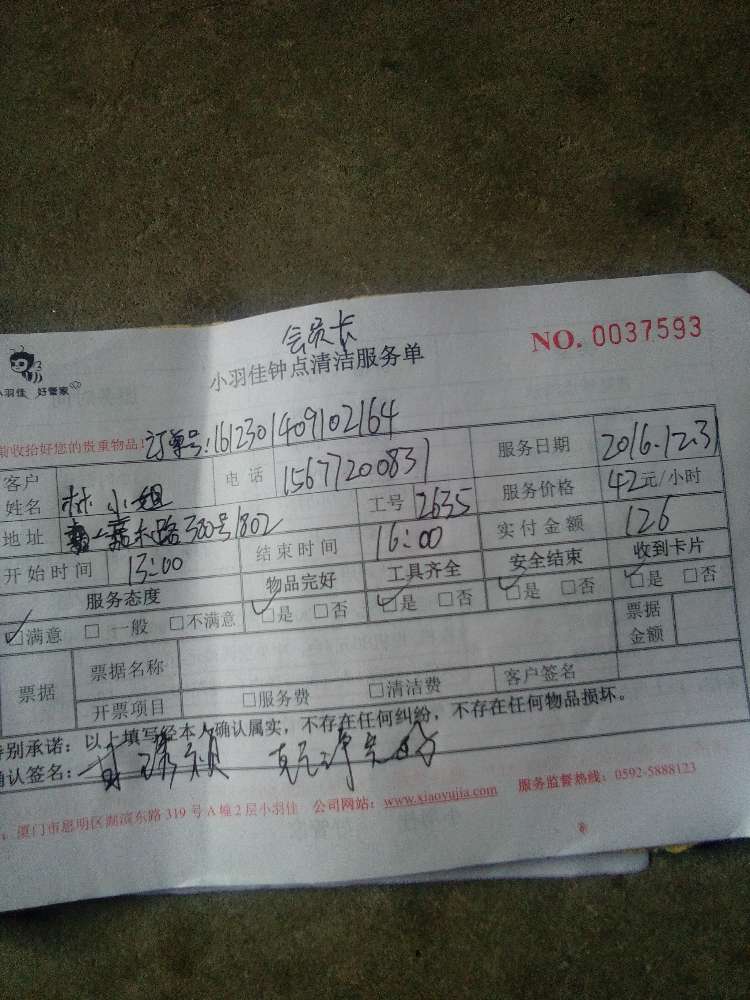 会员卡
NO. 0037593
小羽佳 好管家
小羽佳钟点清洁服务单
前收拾好您的贵重物品! 订单号:161230140910​2164
客户姓名 林小姐 电话 15677200831 服务日期 2016.12.31
地址 路380号1802 工号 2635 服务价格 42元/小时
开始时间 13:00 结束时间 16:00 实付金额 126
服务态度 物品完好 工具齐全 安全结束 收到卡片
☑满意 □一般 □不满意 ☑是 □否 ☑是 □否 ☑是 □否 ☑是 □否
票据 票据名称 票据金额
开票项目 □服务费 □清洁费 客户签名
特别承诺:以上填写经本人确认属实,不存在任何纠纷,不存在任何物品损坏。
确认签名:
:厦门市思明区湖滨东路319号A幢2层小羽佳 公司网站:www.xiaoyujia.com 服务监督热线:0592-5888123